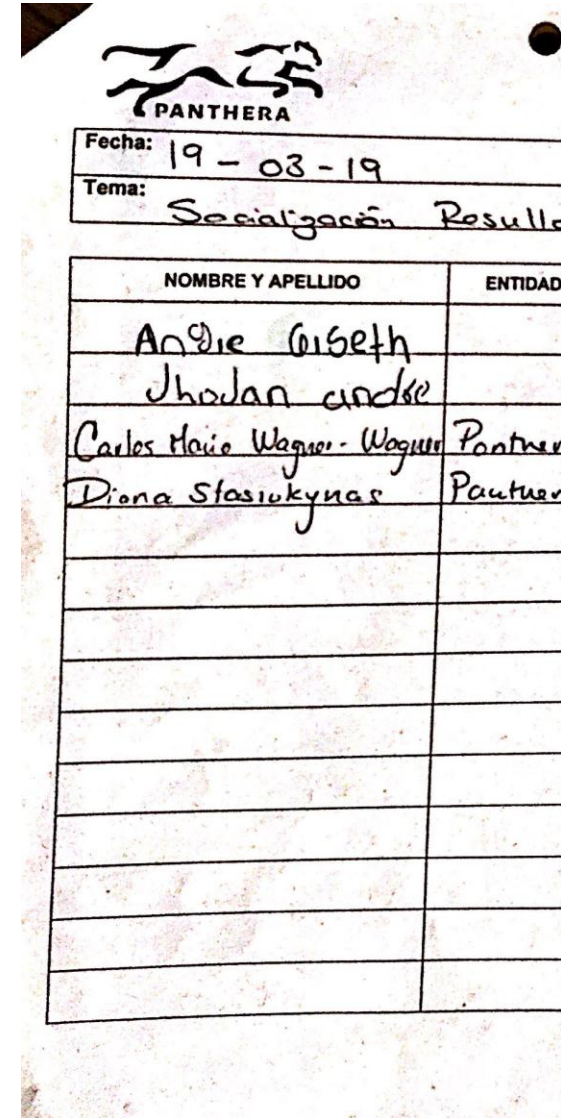 PANTHERA
Fecha: 19 - 03 - 19
Tema: Socialización Resulta
NOMBRE Y APELLIDO ENTIDAD
Angie Giseth
Jhojan andre
Carlos Mario Wagner-Wagner Panther
Diana Stasiukynas Panther